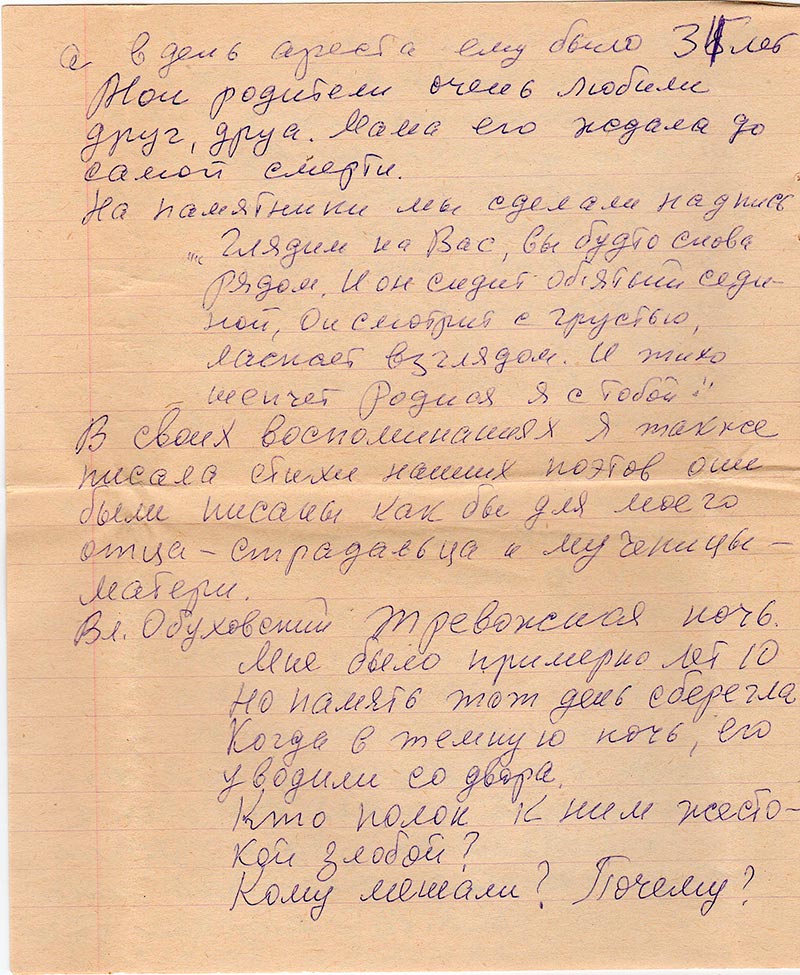 а в день ареста ему было 35 лет
Мои родители очень любили
друг, друа. Мама его ждала до
самой смерти.
На памятники мы сделали надпись
„Глядим на Вас, вы будто снова
рядом. И он сидит объятый седи-
ной, Он смотрит с грустью,
ласкает взглядом. И тихо
шепчет Родная я с тобой!"
В своих воспоминаниях я также
писала стихи наших поэтов они
были писаны как бы для моего
отца – страдальца и мученицы –
матери.
Вл. Обуховский Тревожная ночь.
Мне было примерно лет 10
Но память тот день сберегла
Когда в темную ночь, его
уводили со двора.
Кто полон к ним жесто-
кой злобой?
Кому мешали? Почему?